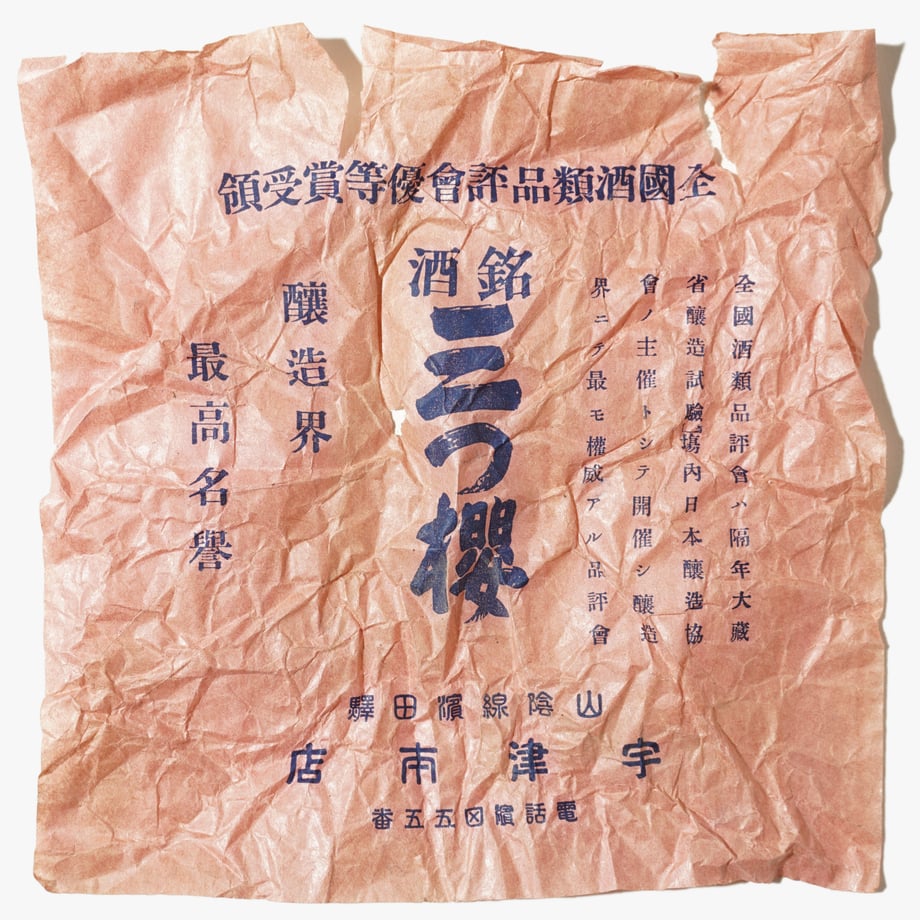 全國酒類品評會優等賞受領
全國酒類品評會ハ隔年大藏
省釀造試驗塲内日本釀造協
會ノ主催トシテ開催シ釀造
界ニテ最モ權威アル品評會
銘酒
三つ櫻
釀造界
最高名譽
山陰線濱田驛
宇津本店
電話濱田五五番